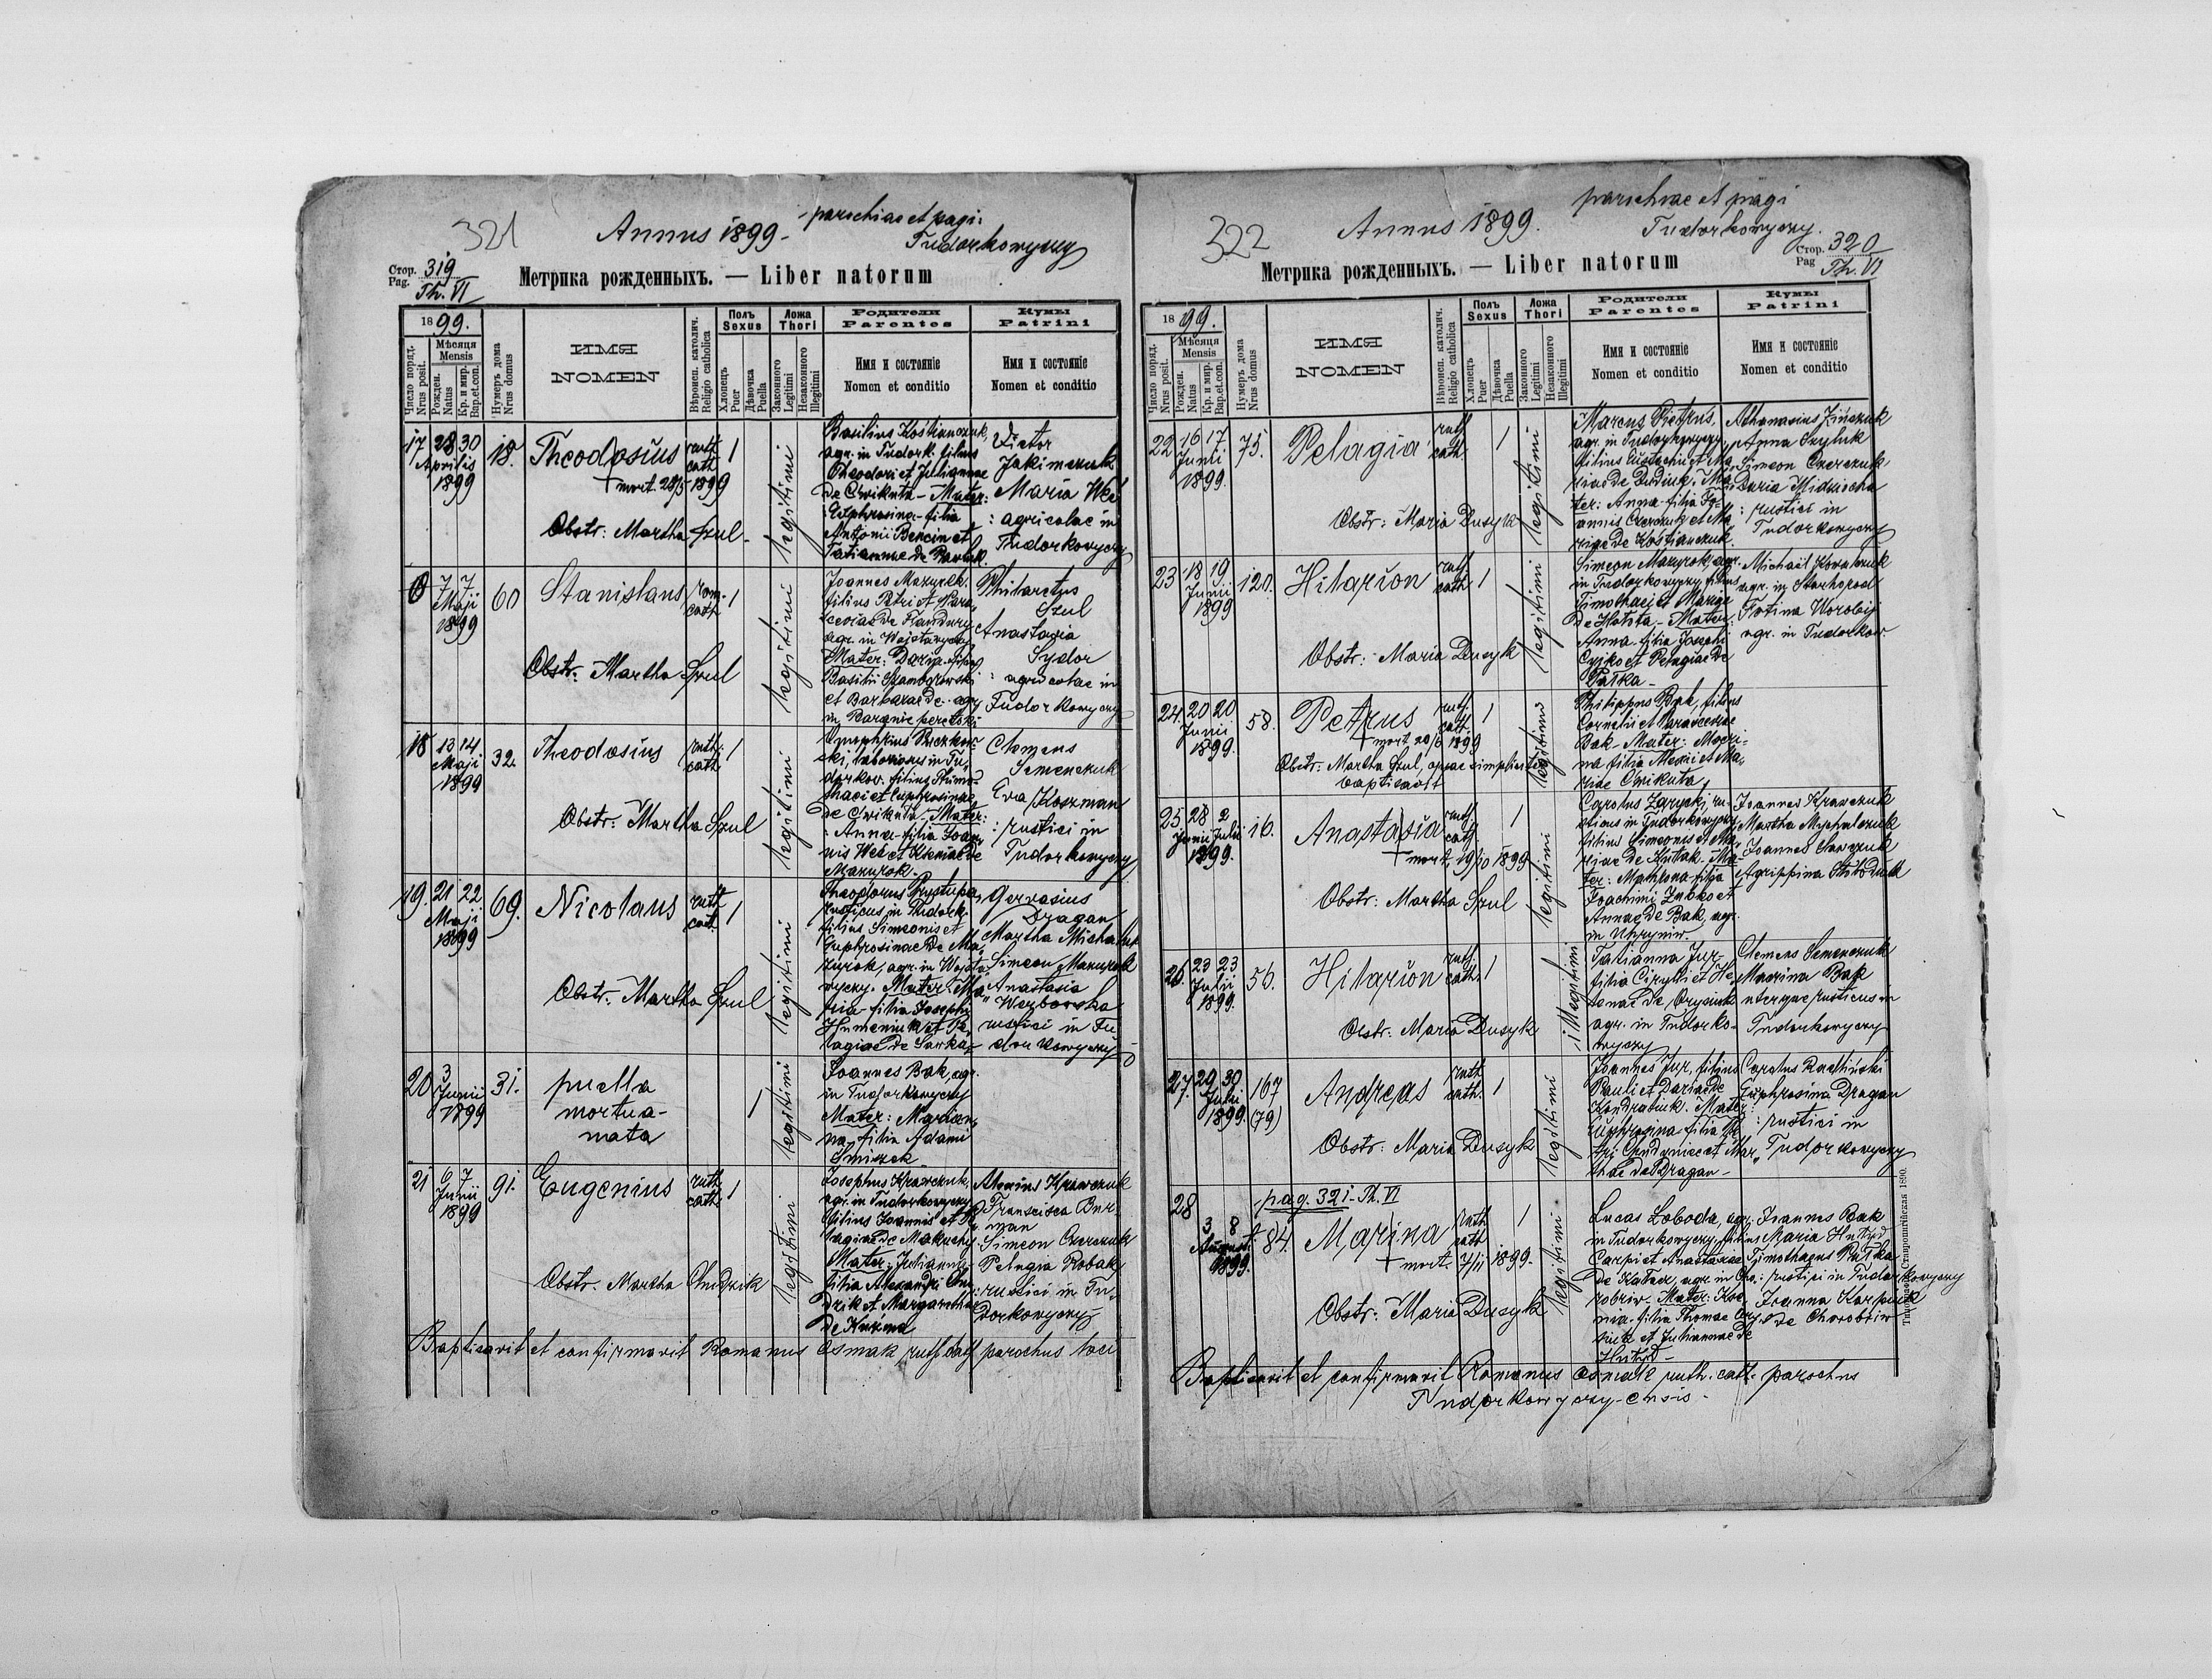 321
Annus 1899 - parochiae et pagi:
Tudorkowyczy
Стор. Pag. 319
Th. VI
Метрика рожденныхъ. — Liber natorum
1899.
Число поряд. Nrus posit.
Мѣсяця Mensis
Рожден. Natus
Кр. и мир. Bap.et.con.
Нумеръ дома Nrus domus
ИМЯ
NOMEN
Вѣроисп. католич. Religio catholica
Полъ Sexus
Хлопецъ Puer
Дѣвочка Puella
Ложа Thori
Законного Legitimi
Незаконного Illegitimi
Родители
Parentes
Имя и состояніе
Nomen et conditio
Кумы
Patrini
Имя и состояніе
Nomen et conditio
17 28 30 Aprilis 1899
18.
Theodosius
ruth. cath.
1
+ mort. 28/5 1899
Obstr: Martha Szul -
legitimi
Basilius Kostianczuk,
agr. in Tudork. filius
Theodori et Juliannae
de Cwikuta - Mater:
Euphrosina - filia
Antonii Bencin et
Tatiannae de
Victor
Jakimczuk
Maria Weś
: agricolae in
Tudorkowyczy
0 7 7 Maji 1899
60
Stanislaus
rom. cath.
1
Obstr: Martha Szul
legitimi
Joannes Mazurek,
filius Petri et Para-
sceviae de
agr. in
Mater: Daria - filia
Basilii
et Barbarae de - agr.
in
Philaretus
Szul
Anastasia
Sydor
: agricolae in
Tudorkowyczy
18 13 14 Maji 1899
32.
Theodosius
ruth. cath.
1
Obstr: Martha Szul
legitimi
Onuphrius Buczkow-
ski, laborans in Tu-
dorkow. filius Thimo-
thaei et Euphrosinae
de Cwikuta - Mater:
: Anna - filia Joan-
nis Weś et Xeniae de
Mazurok -
Clemens
Semenczuk
Eva Koszman
: rustici in
Tudorkowyczy
19. 21 22 Maji 1899
69.
Nicolaus
ruth. cath.
1
Obstr: Martha Szul
legitimi
Theodorus Prystupa,
rusticus in Tudork.
filius Simeonis et
Euphrosinae de Ma-
zurok, agr. in Wojsta-
wyczy. Mater: Ma-
ria - filia Josephi
Humeniuk et Pe-
lagiae de Sawka -
Gervasius
Dragan
Martha Michalczuk
Simeon Mazurok
Anastasia
Werbowska
rustici in Tu-
dorkowyczy
20 3 Junii 1899
31.
puella
mortua-
nata
1
legitimi
Joannes Bak, agr.
in Tudorkowyczy
Mater: Marian-
na, filia Adami
Smiszek
21 6 7 Junii 1899
91.
Eugenius
ruth. cath.
1
Obstr. Martha Chudzik
legitimi
Josephus Krawczuk,
agr. in Tudorkowyczy
filius Joannis et Pe-
lagiae de Makuchy.
Mater: Julianna,
filia Alexandri Chu-
dzik et Margarethae
de Kuźma
Alexius Krawczuk
Francisca Bur-
man
Simeon Czerczuk
Pelagia Robak
: rustici in Tu-
dorkowyczy
Baptisavit et confirmavit Romanus Osmak ruth. cath. parochus loci
322
Annus 1899.
parochiae et pagi
Tudorkowyczy.
Стор. Pag 320
Th. VI
Метрика рожденныхъ. — Liber natorum
1899.
Число поряд. Nrus posit.
Мѣсяця Mensis
Рожден. Natus
Кр. и мир. Bap.et.con.
Нумеръ дома Nrus domus
ИМЯ
NOMEN
Вѣроисп. католич. Religio catholica
Полъ Sexus
Хлопецъ Puer
Дѣвочка Puella
Ложа Thori
Законного Legitimi
Незаконного Illegitimi
Родители
Parentes
Имя и состояніе
Nomen et conditio
Кумы
Patrini
Имя и состояніе
Nomen et conditio
22 16 17 Junii 1899.
75.
Pelagia
ruth. cath.
1
Obstr: Maria Dusyk
legitimi
Marcus Pietrus,
agr. in Tudorkowyczy
filius Eustachii et Ma-
riae de Dudiuk. Ma-
ter: Anna - filia Jo-
annis Czerczuk et Ma-
riae de Kostianczuk.
Athanasius
Anna Szyluk
Simeon Czerczuk
Daria Midziocha
: rustici in
Tudorkowyczy
23 18 19 Junii 1899
120.
Hilarion
ruth. cath.
1
Obstr: Maria Dusyk
legitimi
Simeon Mazurok, agr.
in Tudorkowyczy filius
Timothaei et Mariae
de Hołota - Mater:
Anna - filia Josephi
et Pelagiae de
Pałka -
Michaël Kowalczuk
agr. in Starhorod
Fotina Worobij
agr. in Tudorkow.
24. 20 20 Junii 1899.
58.
Petrus
ruth. cath.
1
+ mort. 20/6 1899
Obstr: Martha Szul, quae simpliciter
baptisavit
legitimi
Philippus Bak, filius
Cornelii et Parasceviae
Bak - Mater: Macri-
na filia Alexii et Ma-
riae Cwikuta.
25. 28 2 Junii Julii 1899.
16.
Anastasia
ruth. cath.
1
+ mort. 19/10 1899
Obstr: Martha Szul
legitimi
Carolus Zarycki, ru-
sticus in Tudorkowyczy
filius Simeonis et Ma-
riae de Hułak - Ma-
ter: Matrona - filia
Joachimi Zubko et
Annae de Bak, agr.
in Uhryniw.
Joannes Krawczuk
Martha Mychalczuk
Joannes Sawczuk
Agrippina
26. 23 23 Julii 1899.
56.
Hilarion
ruth. cath.
1
Obstr: Maria Dusyk
illegitimi
Tatianna Jur -
filia Cirylli et He-
lenae de Orysiuk
agr. in Tudorko-
wyczy
Clemens Semenczuk
Macrina Bak
uterque rusticus in
Tudorkowyczy
27. 29 30 Julii 1899.
167
(79)
Andreas
ruth. cath.
1
Obstr: Maria Dusyk
legitimi
Joannes Jur, filius
Pauli et Dariae de
Kondratiuk. Mater:
Euphrosina - filia Pe-
tri et Mar-
thae de Dragan -
Carolus
Euphrosina Dragan
: rustici in
Tudorkowyczy
28
pag. 321 - Th. VI
3 8 Augusti 1899.
84.
Marina
ruth. cath.
1
+ mort. 7/11 1899.
Obstr: Maria Dusyk
legitimi
Lucas Łoboda, agr.
in Tudorkowyczy, filius
Carpi et Anastasiae
de agr. in Cho-
robriw. Mater: Xe-
nia - filia Thomae Ory-
siuk et Juliannae de
Hntyd -
Joannes Bak
Maria Hnatyd
Timothaeus Pałka
: rustici in Tudorkowyczy
Joanna Karpiuk
de Chorobriw
Baptisavit et confirmavit Romanus Osmak ruth. cath. parochus
Tudorkowyczy-ensis -
Ставропигійская 1890.